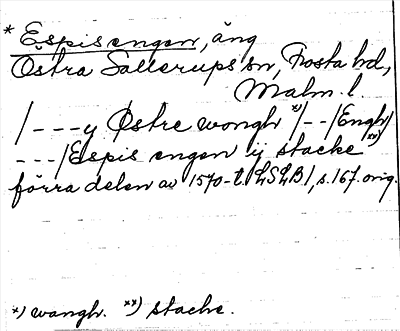 * Espis engen, äng
Östra Sallerups sn, Frosta hd,
Malm. l.
/---y Østre wongh *)/--/Engh/
---/Espis engen ij stacke **)
förra delen av 1570-t. LSLB/, s. 167. orig.
*) wangh. **) stache.